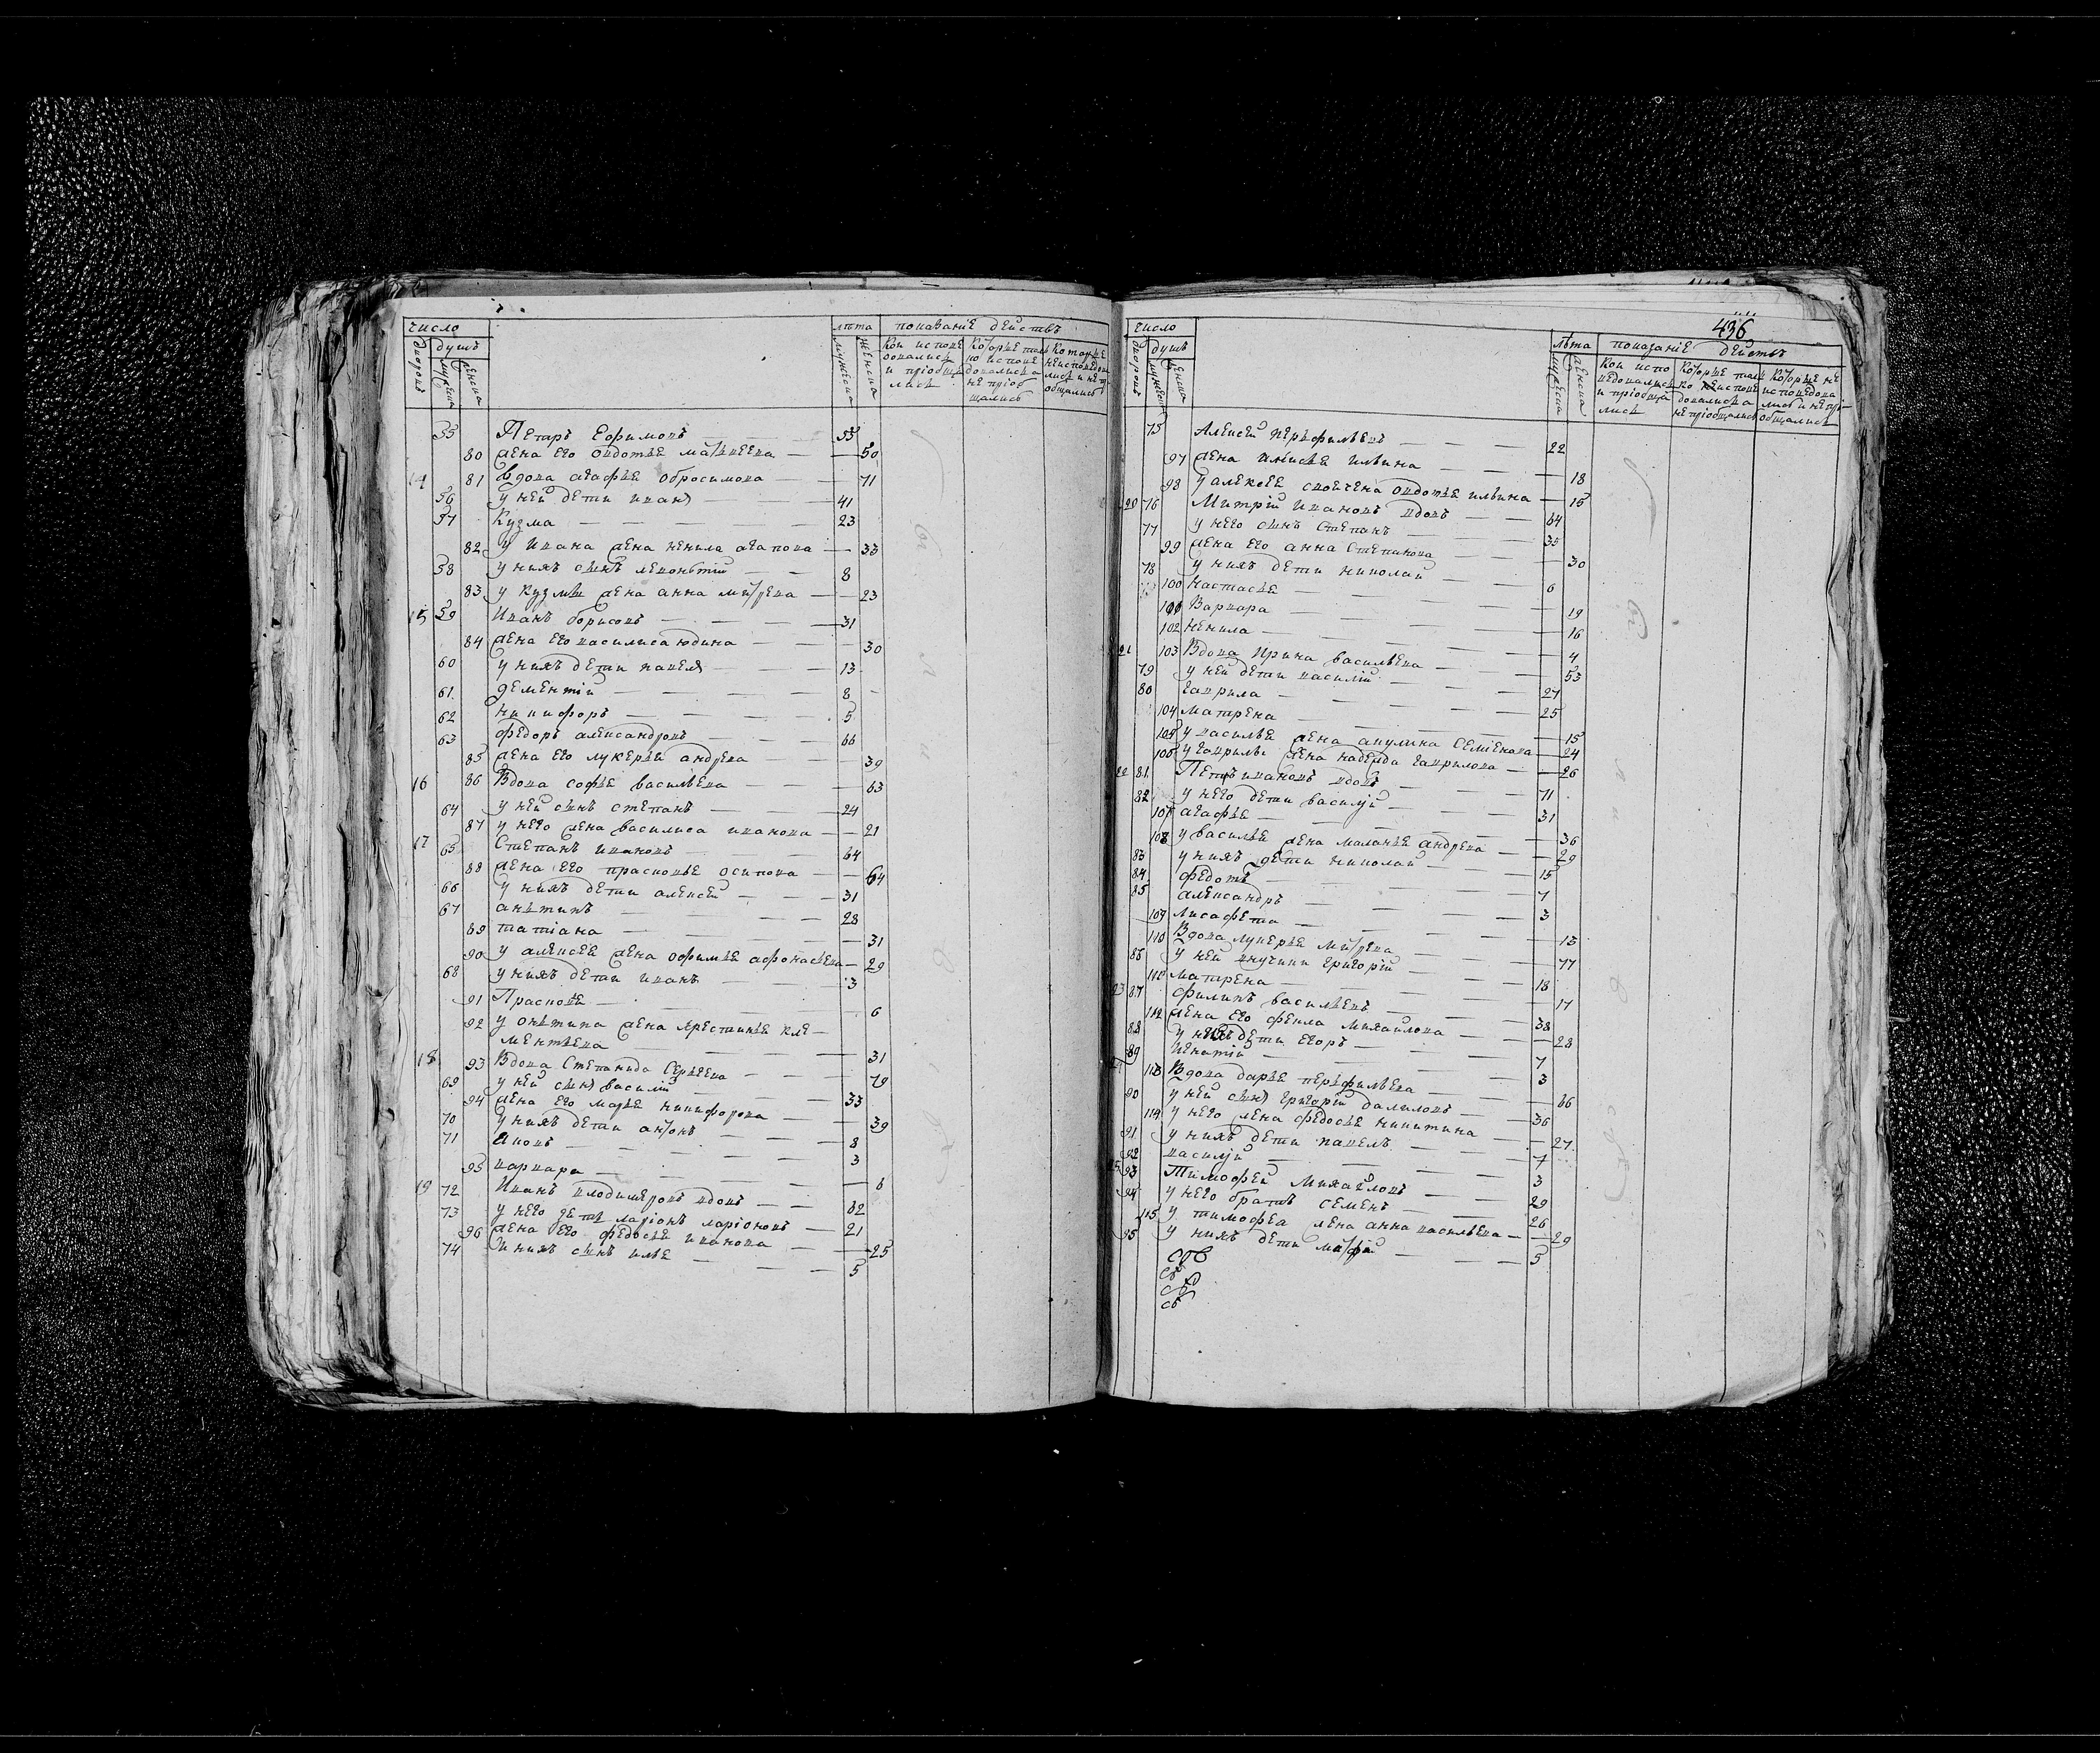 число
дворовъ
душъ
мужеска
женска
лѣта
мужеска
женска
показанiе действъ
Кои испове
довались
и прiобщ
лись
Которые толь
ко испове
довались а
не прiоб
щались
Которые
неисповедо
лись и не п
общались
55 Петаръ Ефимовъ 55
80 жена его овдотья матвеева 50
14 81 вдова агафья обросимова 71
56 у ней дети иванъ 41
57 Кузма 23
82 у Ивана жена ненила агапова 33
58 у нихъ сынъ левоньтiй 8
83 у Кузмы жена анна митрева 23
15 59 Иванъ борисовъ 31
84 жена его василиса юдина 30
60 у нихъ дети павелъ 13
61 дементiй 8
62 никифоръ 5
63 федоръ александровъ 66
85 жена его лукерья андрева 39
16 86 Вдова софья васильева 63
64 у ней сынъ степанъ 24
87 у него жена василиса иванова 21
17 65 Степанъ ивановъ 64
88 жена его прасковья осипова 64
66 у нихъ дети алексей 31
67 анътипъ 28
89 татiана 31
90 у алексея жена офимья афонасьева 29
68 у нихъ дети иванъ 3
91 Прасковя 6
92 у онътипа жена хрестинья кле
ментьева 31
18 93 Вдова Степанида Сергеева 79
69 у ней сынъ василiй 33
94 жена его марья никифорова 39
70 у нихъ дети антонъ 8
71 яковъ 3
95 варвара 6
19 72 Иванъ владимеровъ вдовъ 62
73 у него дети ларiонъ ларiоновъ 21
96 жена его федосья иванова 25
74 и нихъ сынъ илья 5
436
число
дворовъ
душъ
мужеска
женска
лѣта
мужеска
женска
показанiе действъ
Кои испо
ведовались
и прiобща
лись
Которые толь
ко испове
довались а
не прiобщались
Которые не
исповедова
лись и не прi
общались
75 Алексей перьфильевъ 22
97 жена ильина 18
98 у алексея овдотья ильина 15
20 76 Митрiй ивановъ вдовъ 64
77 у него сынъ Степанъ 35
99 жена его анна Степанова 30
78 у нихъ дети николай 6
100 Настасья 19
101 Варвара 16
102 Ненила 4
21 103 Вдова Ирина васильева 53
79 у ней дети василiй 27
80 гаврила 25
104 матрена 15
105 у василья жена акулина Семенова 24
106 у гаврилы жена надежда гаврилова 26
22 81 Петръ ивановъ вдовъ 71
82 у него дети василiй 31
107 агафья 36
108 у василья жена маланья андрева 29
83 у нихъ дети николай 15
84 федотъ 7
85 александръ 3
109 лисафета 13
110 Вдова лукерья митрева 77
86 у ней внучики григорiй 18
111 матрена 17
23 87 филипъ васильевъ 38
112 жена его фекла михайлова 28
88 у нихъ дети егоръ 7
89 игнатiй 3
113 Вдова дарья перьфильева 66
90 у ней сынъ григорiй даниловъ 36
114 у него жена федосья никитина 27
91 у нихъ дети павелъ 7
92 василiй 3
25 93 Тимофей михайловъ 29
94 у него братъ семенъ 26
115 у тимофея жена анна васильева 29
95 у нихъ дети матфей 5